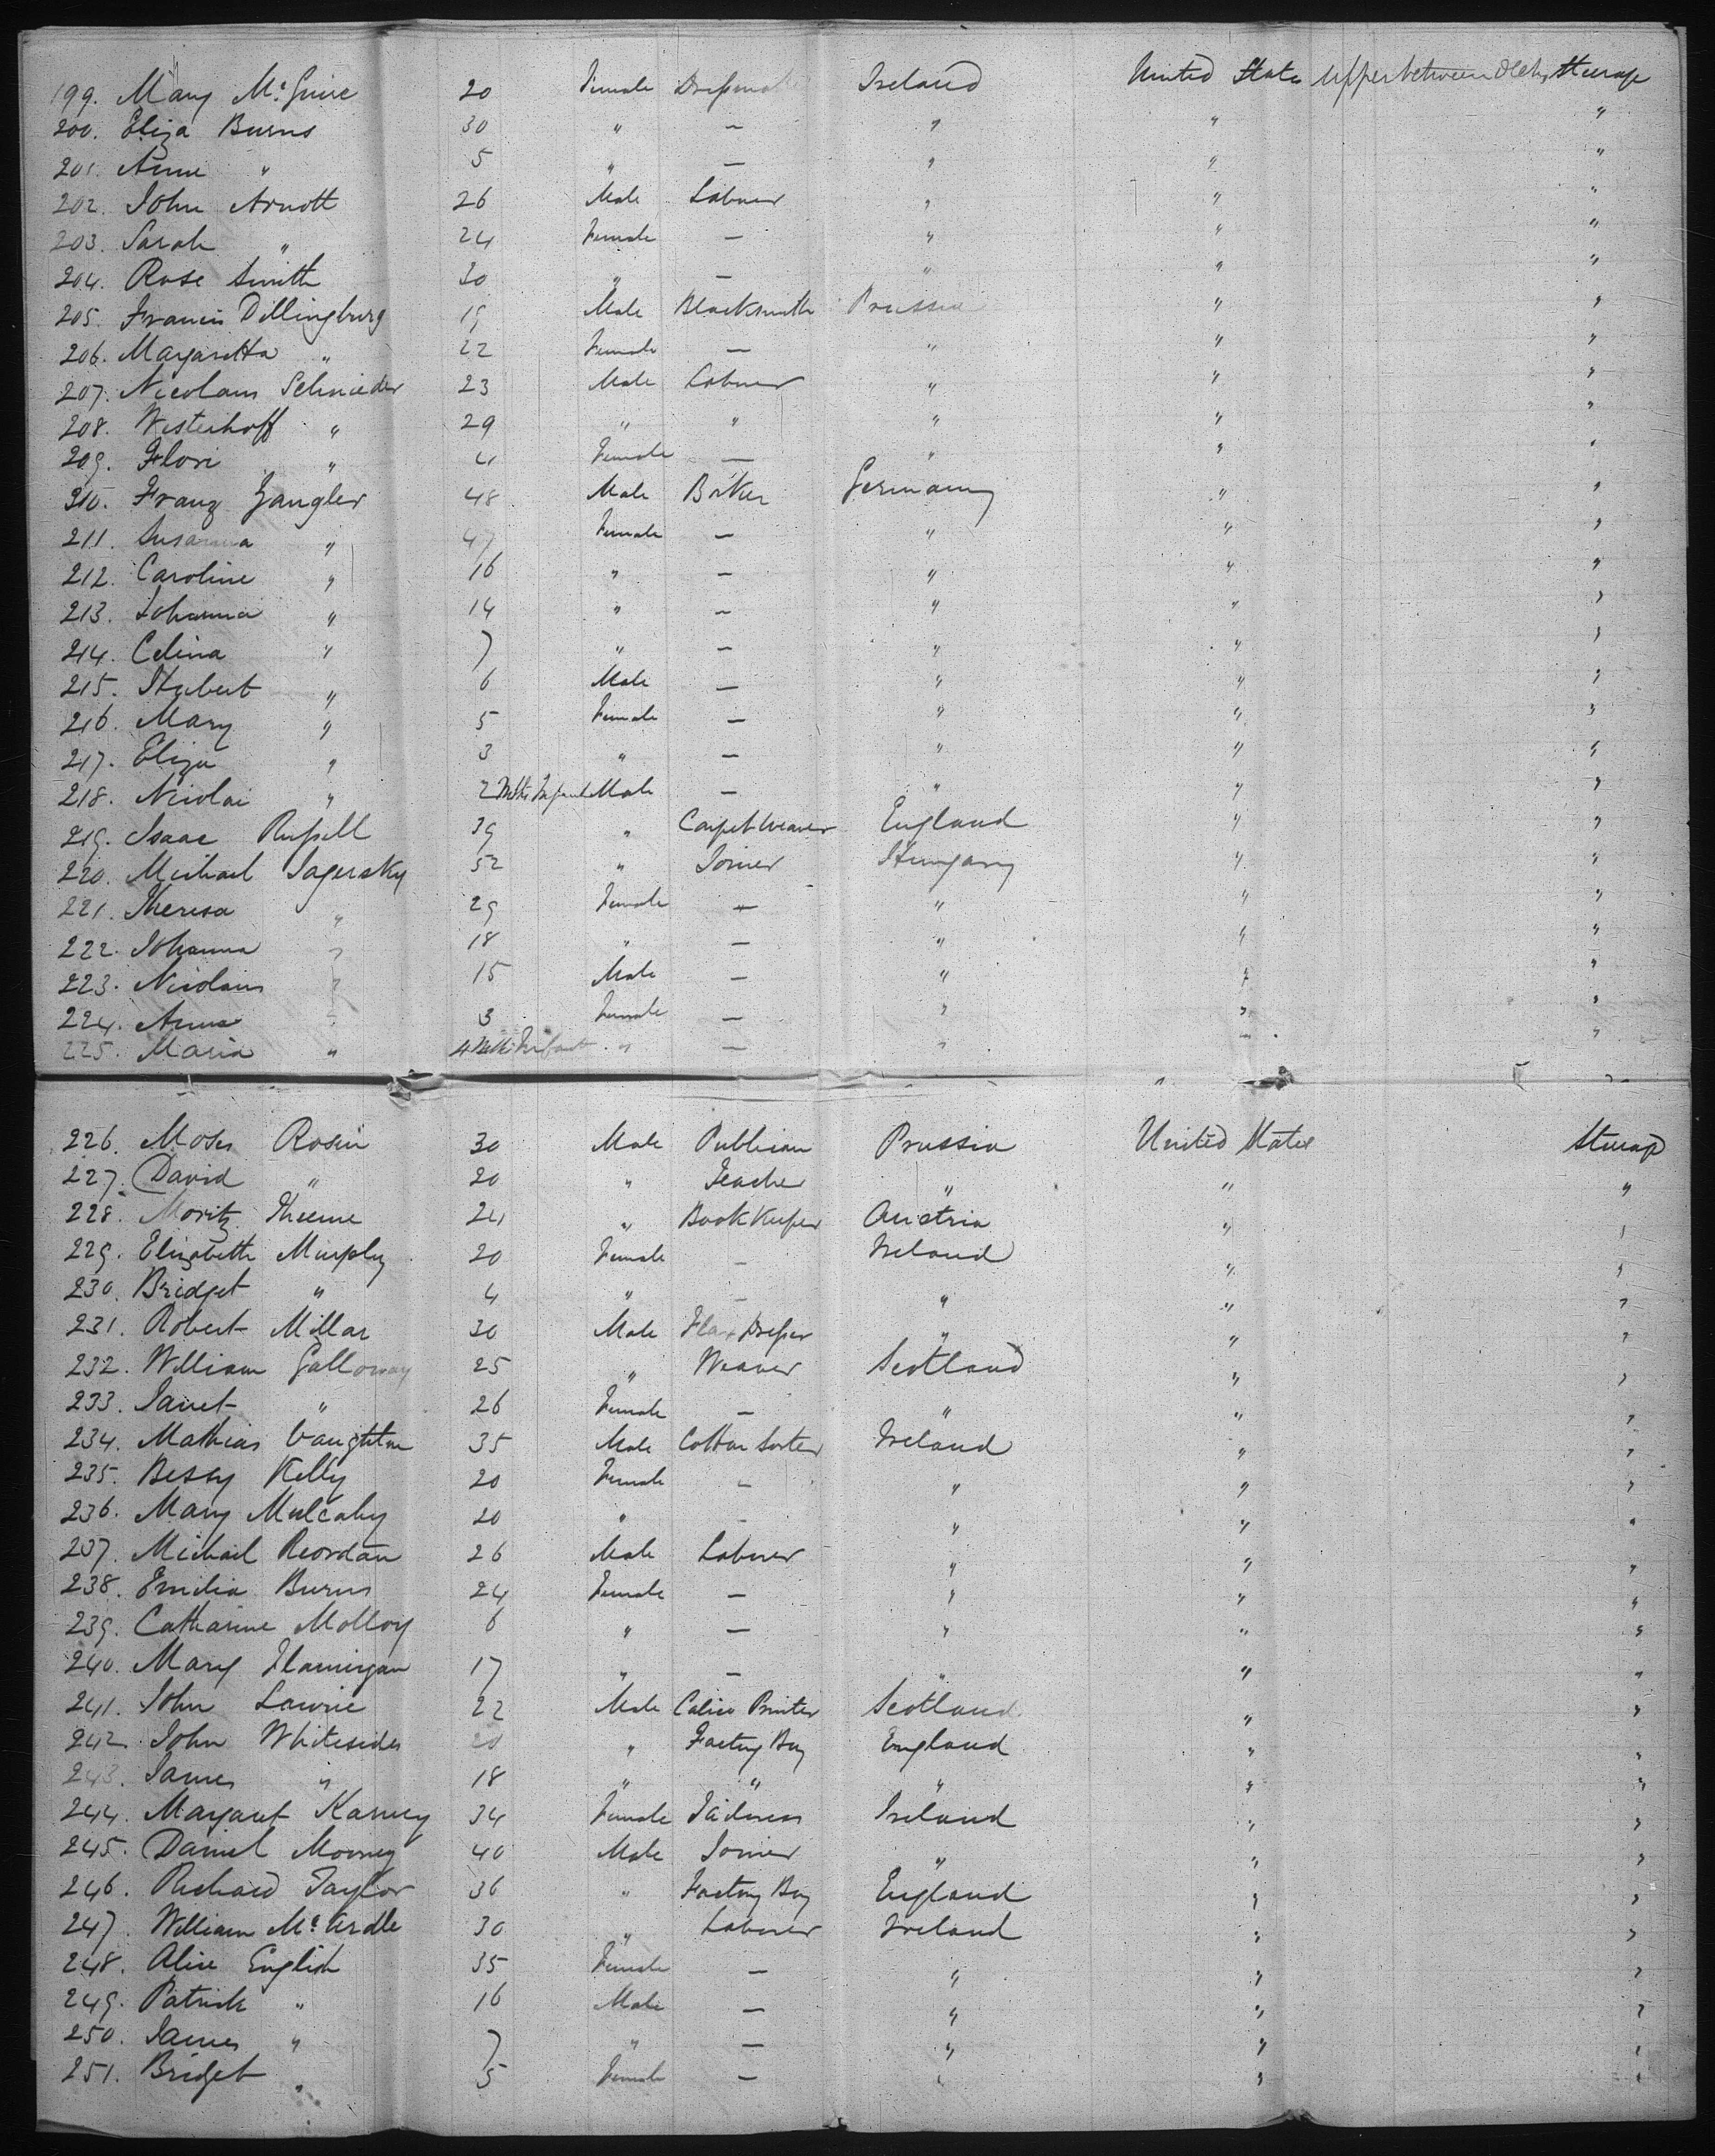 199. Mary McGuire 20 Female Dressmaker Ireland United States Upper between Decks Steerage
200. Eliza Burns 30 " — " " "
201. Anne " 5 " — " " "
202. John Arnott 26 Male Laborer " " "
203. Sarah " 24 Female — " " "
204. Rose Smith 30 " — " " "
205. Francis Dillingburg 19 Male Blacksmith Prussia " "
206. Margaretta " 22 Female — " " "
207. Nicolaus Schnieder 23 Male Laborer " " "
208. Westerhoff " 29 " " " " "
209. Flori " 4 Female — " " "
310. Franz Zangler 48 Male Baker Germany " "
211. Susanna " 47 Female — " " "
212. Caroline " 16 " — " " "
213. Johanna " 14 " — " " "
214. Celina " 7 " — " " "
215. Hubert " 6 Male — " " "
216. Mary " 5 Female — " " "
217. Eliza " 3 " — " " "
218. Nicolai " 2 Mths Infant Male — " " "
219. Isaac Russell 39 " Carpet Weaver England " "
220. Michael Jagersky 52 " Joiner Hungary " "
221. Theresa " 29 Female — " " "
222. Johanna " 18 " — " " "
223. Nicolaus " 15 Male — " " "
224. Anna " 3 Female — " " "
225. Maria " 4 Mths Infant " — " " "
226. Moses Rosin 30 Male Publican Prussia United States Steerage
227. David " 20 " Teacher " " "
228. Moritz Theeme 24 " Book Keeper Austria " "
229. Elizabeth Murphy 20 Female — Ireland " "
230. Bridget " 4 " — " " "
231. Robert Millar 30 Male Flax Dresser " " "
232. William Galloway 25 " Weaver Scotland " "
233. Janet " 26 Female — " " "
234. Mathias Vaughton 35 Male Cotton Sorter Ireland " "
235. Bessy Kelly 20 Female — " " "
236. Mary Mulcahy 20 " — " " "
237. Michael Reordan 26 Male Laborer " " "
238. Emilia Burns 24 Female — " " "
239. Catharine Molloy 6 " — " " "
240. Mary Flannigan 17 " — " " "
241. John Lawrie 22 Male Calico Printer Scotland " "
242. John Whitesides 20 " Factory Boy England " "
243. James " 18 " " " " "
244. Margaret Karney 34 Female Ireland " "
245. Daniel Mooney 40 Male Joiner " " "
246. Richard Taylor 36 " Factory Boy England " "
247. William McArdle 30 " Laborer Ireland " "
248. Alice English 35 Female — " " "
249. Patrick " 16 Male — " " "
250. James " 7 " — " " "
251. Bridget " 5 Female — " " "